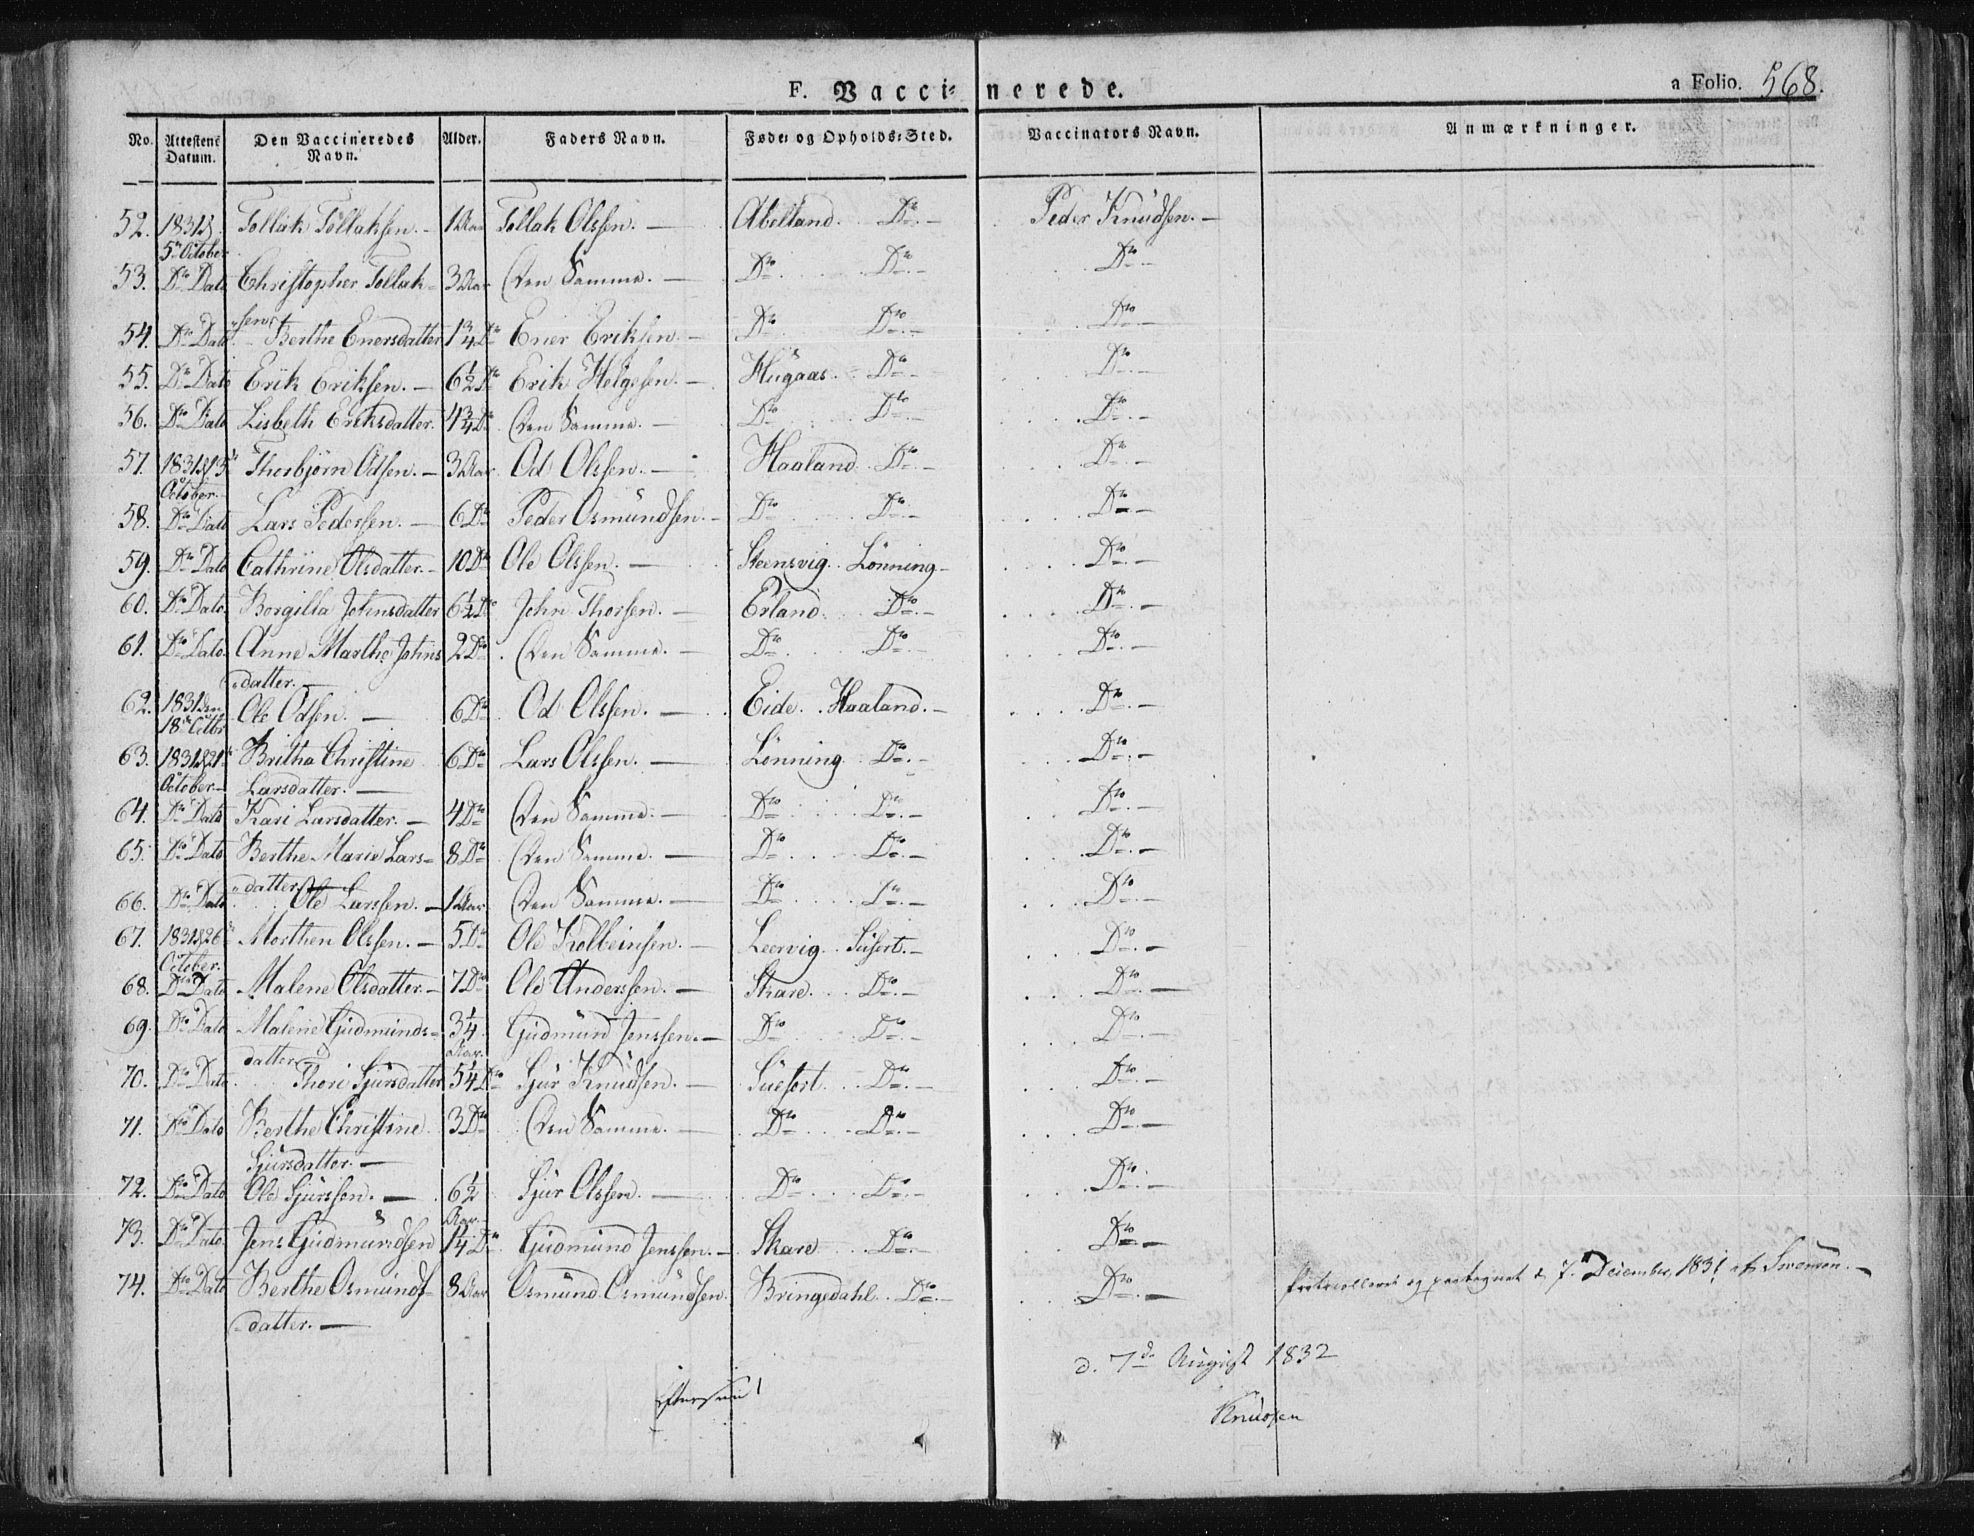 F. Vaccinerede. a Folio. 568.
No. Attestens Datum. Den Vaccineredes Navn. Alder. Faders Navn. Føde- og Opholds-Sted. Vaccinators Navn. Anmærkninger.
52. 1831 d. 5te October Tollak Tollaksen. – 1 Aar Tollak Olssen. – Abelland. Do. – Peder Knudsen. –
53. Do Dato Christopher Tollak- 3 Aar Den Samme. – Do. Do. – Do. –
sen.
54. Do Dato Berthe Enersdatter 1 3/4 Do Ener Eriksen. – Do. Do. – Do. –
55. Do Dato Erik Eriksen. – 6 1/2 Do Erik Helgesen. – Hugaas. Do. – Do. –
56. Do Dato Lisbeth Eriksdatter. 4 3/4 Do Den Samme. – Do. Do. – Do. –
57. 1831 d. 13de October. Thorbjørn Odsen. – 3 Aar Od Olssen. – Haaland. Do. – Do. –
58. Do Dato Lars Pedersen. – 6 Do Peder Osmundsen. – Do. Do. – Do. –
59. Do Dato Cathrine Olsdatter. – 10 Do Ole Olssen. – Steensvig. Lønning. – Do. –
60. Do Dato. Borgilla Johnsdatter 6 1/2 Do John Thorsen. – Erland. Do. – Do. –
61. Do Dato. Anne Marthe Johns 2 Do. Den Samme. – Do. Do. – Do. –
datter. –
62. 1831 den 18de Octbr Ole Odsen. – 6 Do Od Olssen. – Eide. Haaland. – Do. –
63. 1831 d. 21de October – Britha Christine 6 Do Lars Olssen. – Lønning Do. – Do. –
Larsdatter. –
64. Do Dato Kari Larsdatter. – 4 Do Den Samme. – Do. Do. – Do. –
65. Do Dato Berthe Marie Lars- 8 Do Den Samme. – Do. Do. – Do. –
datter.
66. Do Dato Ole Larssen. – 1 Aar Den Samme. – Do. Do. – Do. –
67. 1831 d. 26de October. Morthen Olssen. – 5 Do Ole Kolbeinsen. – Leervig. – Do. –
68. Do Dato Malene Olsdatter. – 7 Do Ole Anderssen. – Skare. Do. – Do. –
69. Do Dato Malene Gudmunds- 3 1/4 Aar. Gudmund Jenssen. – Do. Do. – Do. –
datter –
70. Do Dato Thori Sjursdatter 5 1/4 Do Sjur Knudsen. – Do. – Do. –
71. Do Dato Berthe Christine 3 Do Den Samme. – Do. Do. – Do. –
Sjursdatter. –
72. Do Dato Ole Sjurssen. – 6 1/2 Aar – Sjur Olssen. – Do. Do. – Do. –
73. Do Dato Jens Gudmundsen 1 1/4 Do Gudmund Jenssen. – Skare. Do. – Do. –
74. Do Dato Berthe Osmunds- 8 Aar Osmund Osmundsen. Bringedahl. Do. – Do. – d 7. December 1831 af
datter. –
d. 7de August 1832
Efterseet
Knudsen